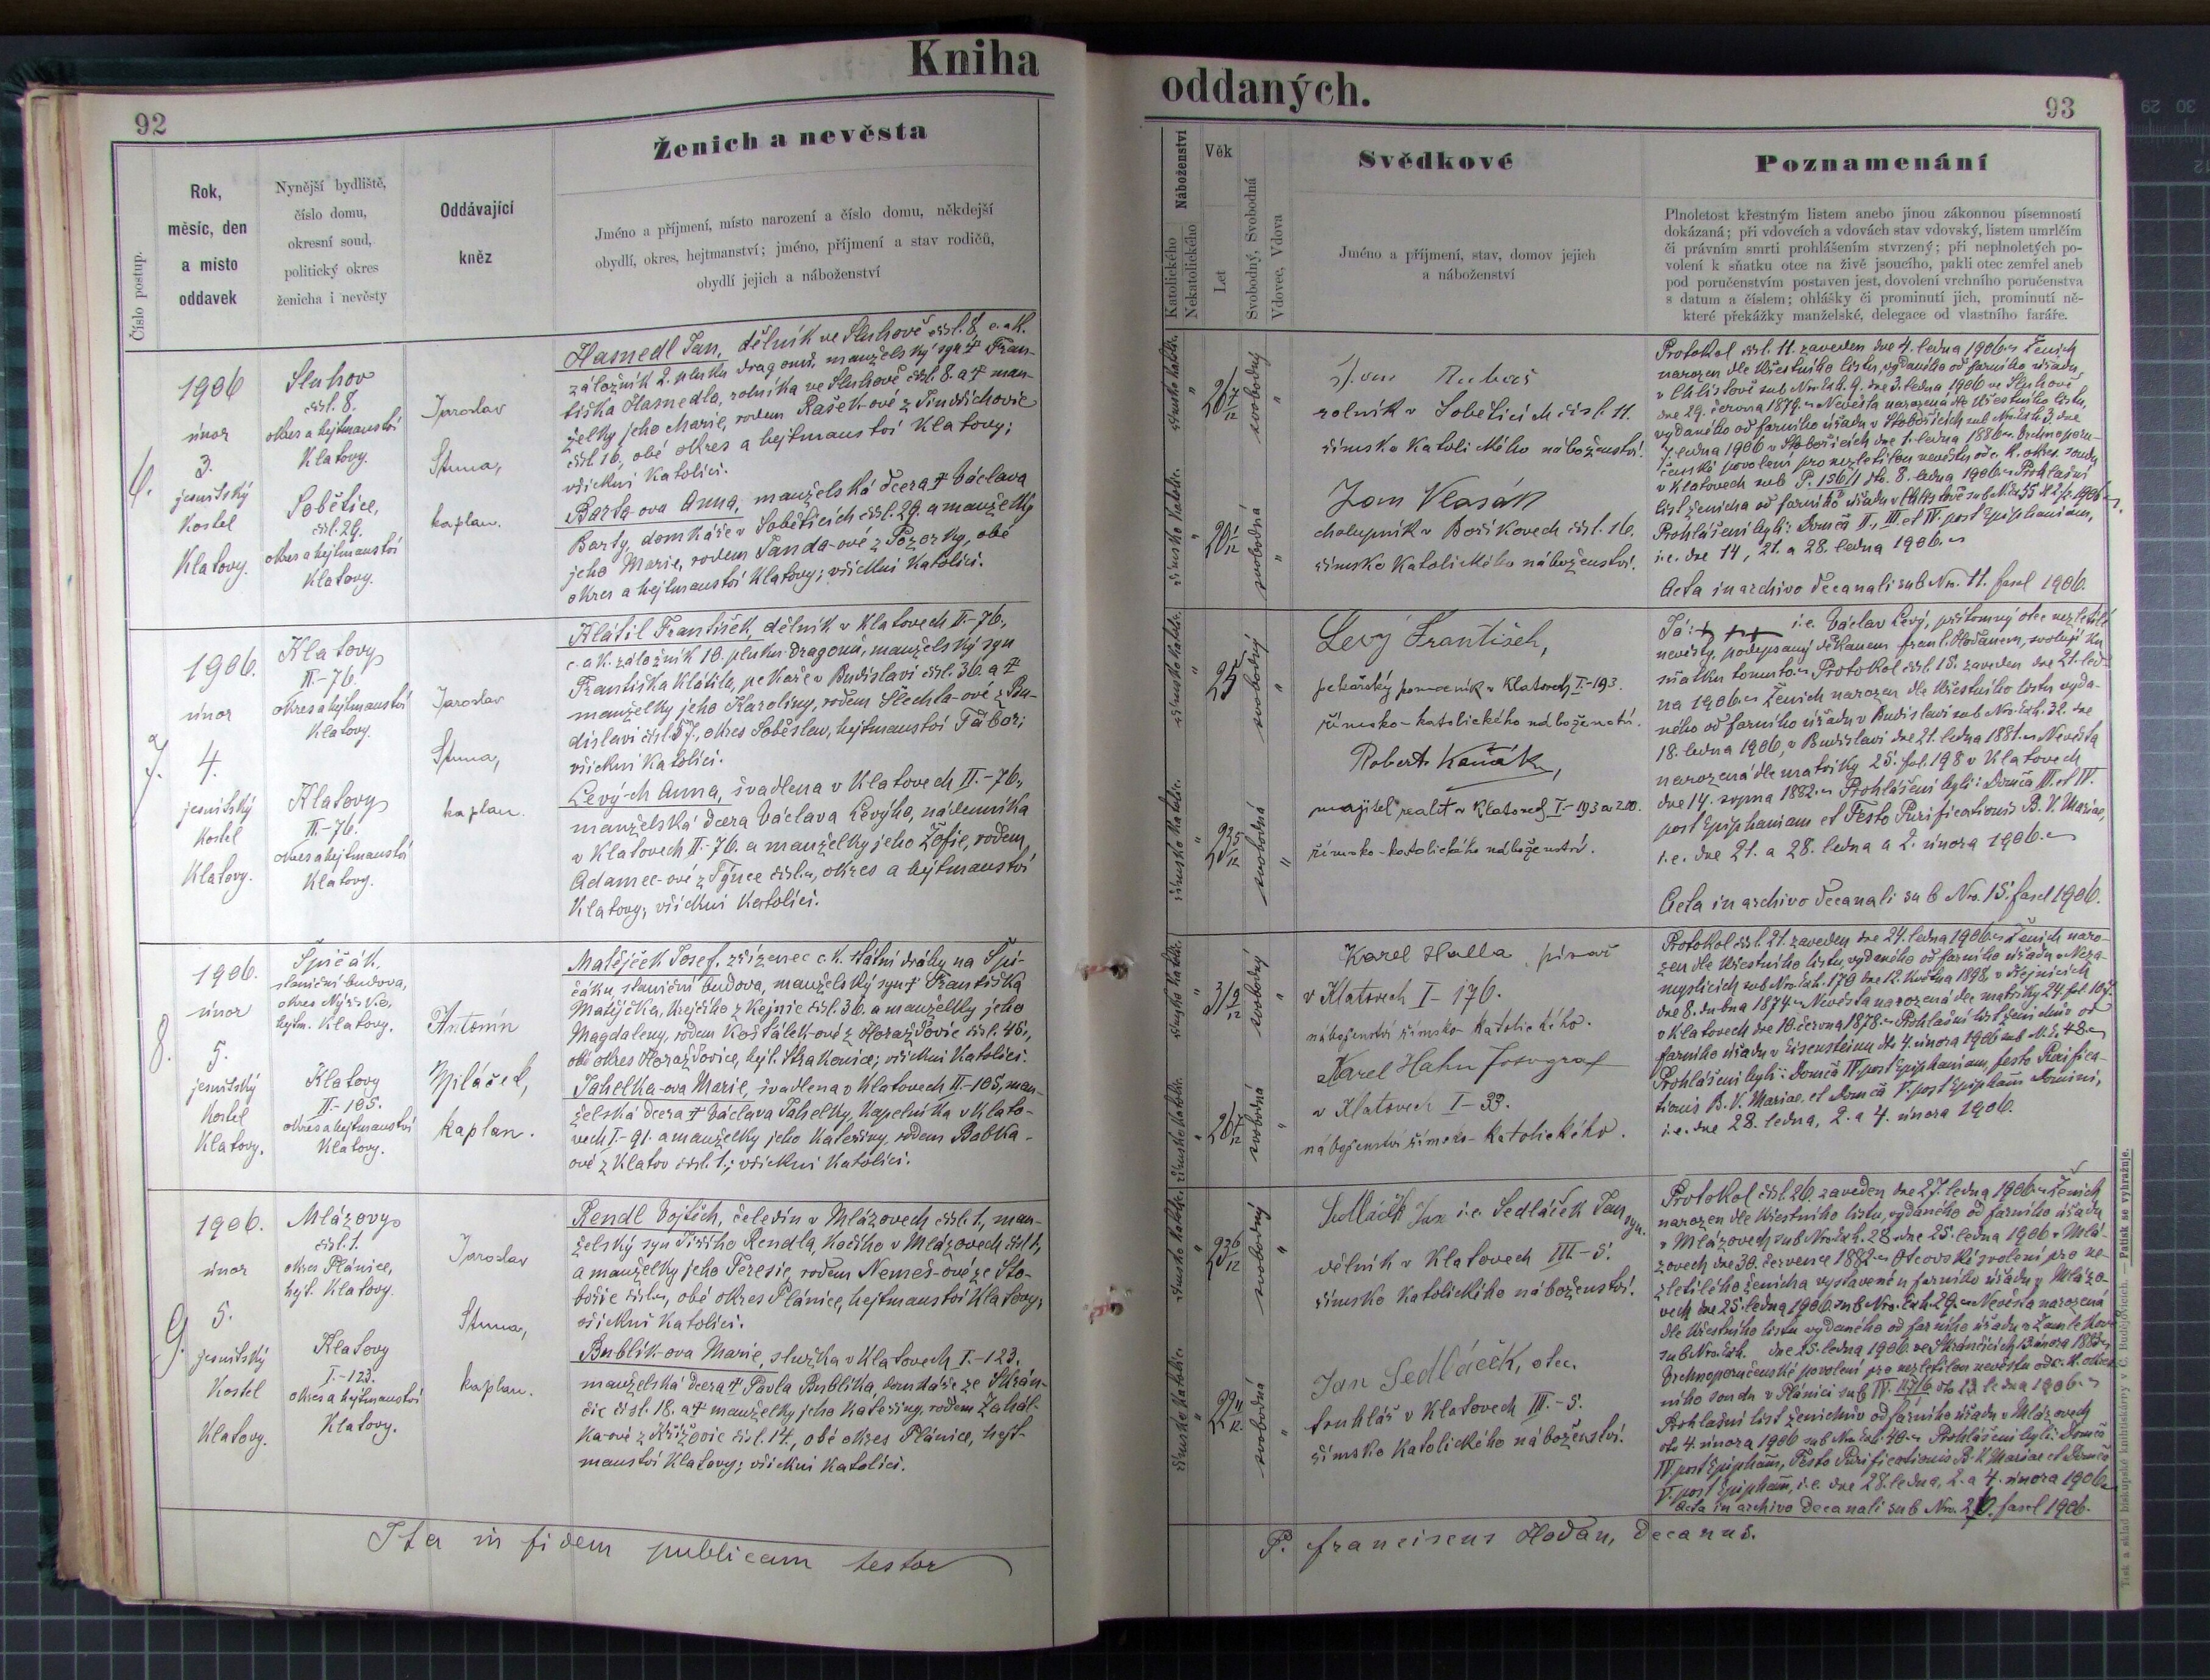 Kniha
92
Ženich a nevěsta
Číslo postup.
Rok,
měsíc, den
a místo
oddavek
Nynější bydliště,
číslo domu,
okresní soud,
politický okres
ženicha i nevěsty
Oddávající
kněz
Jméno a příjmení, místo narození a číslo domu, někdejší
obydlí, okres, hejtmanství; jméno, příjmení a stav rodičů,
obydlí jejich a náboženství
6.
1906
únor
3.
jesuitský
kostel
Klatovy.
Sluhov
čísl. 8.
okres a hejtmanství
Klatovy.
Sobětice,
čísl. 29.
okres a hejtmanství
Klatovy.
Jaroslav
kaplan.
Hasnedl Jan, dělník ve Sluhově čísl. 8, c. a k.
záložník 2. pluku dragonů, manželský syn † Fran-
tiška Hasnedla, rolníka ve Sluhově čísl. 8. a † man-
želky jeho Marie, rodem Rašek-ové z Jindřichovic
čísl. 16, obé okres a hejtmanství Klatovy;
všickni katolíci.
Barta-ova Anna, manželská dcera † Václava
Barty, domkáře v Soběticích čísl. 29. a manželky
jeho Marie, rodem Janda-ové z Pozorky, obé
okres a hejtmanství Klatovy; všickni katolíci.
7.
1906.
únor
4.
jesuitský
kostel
Klatovy.
Klatovy
II.-76.
okres a hejtmanství
Klatovy.
Klatovy
II.-76.
okres a hejtmanství
Klatovy.
Jaroslav
kaplan.
Klátil František, dělník v Klatovech II-76,
c. a k. záložník 10. pluku dragonů, manželský syn
Františka Klátila, pekaře v Budislavi čísl. 36. a †
manželky jeho Karoliny, rodem Šlechta-ové z Bu-
dislavi čísl. 57., okres Soběslav, hejtmanství Tábor;
všickni katolíci.
Levý-ch Anna, švadlena v Klatovech II.-76,
manželská dcera Václava Levýho, nádenníka
v Klatovech II.-76. a manželky jeho Žofie, rodem
Adamec-ové z Týnce čísl. „, okres a hejtmanství
Klatovy; všickni katolíci.
8.
1906.
únor
5.
jesuitský
kostel
Klatovy.
Špičák,
staniční budova,
okres Nýrsko,
hejtm. Klatovy.
Klatovy
II.-105.
okres a hejtmanství
Klatovy.
Antonín
kaplan.
Matějček Josef, zřízenec c. k. státní dráhy na Špi-
čáku, staniční budova, manželský syn † Františka
Matějčka, krejčího z Kejnic čísl. 36. a manželky jeho
Magdaleny, rodem Košťálek-ové z Horažďovic čísl. 45,
obé okres Horažďovice, hejt. Strakonice; všickni katolíci.
Tahelka-ova Marie, švadlena v Klatovech II-105, man-
želská dcera † Václava Tahelky, kapelníka v Klato-
vech I-91. a manželky jeho Kateřiny, rodem Bobka-
ové z Klatov čísl. 1.; všickni katolíci.
9.
1906.
únor
5.
jesuitský
kostel
Klatovy.
Mlázovy
čísl. 1.
okres Plánice,
hejt. Klatovy.
Klatovy
I.-123.
okres a hejtmanství
Klatovy.
Jaroslav
kaplan.
Rendl Vojtěch, čeledín v Mlázovech čísl. 1, man-
želský syn Jiřího Rendla, kočího v Mlázovech čísl. 1,
a manželky jeho Terezie, rodem Nemeš-ové ze Sto-
bořic čísl. „, obé okres Plánice, hejtmanství Klatovy;
všickni katolíci.
Bublík-ova Marie, služka v Klatovech I.-123.
manželská dcera † Pavla Bublíka, domkáře ze Skrán-
čic čísl. 18. a † manželky jeho Kateřiny, rodem Zahál-
ka-ové z Křížovic čísl. 14., obé okres Plánice, hejt-
manství Klatovy; všickni katolíci.
Ita in fidem publicam testor
oddaných.
93
Náboženství
Katolického
Nekatolického
Věk
Let
Svobodný, Svobodná
Vdovec, Vdova
Svědkové
Jméno a příjmení, stav, domov jejich
a náboženství
Poznamenání
Plnoletost křestným listem anebo jinou zákonnou písemností
dokázaná; při vdovcích a vdovách stav vdovský, listem umrlčím
či právním smrti prohlášením stvrzený; při neplnoletých po-
volení k sňatku otce na živě jsoucího, pakli otec zemřel aneb
pod poručenstvím postaven jest, dovolení vrchního poručenstva
s datum a číslem; ohlášky či prominutí jich, prominutí ně-
které překážky manželské, delegace od vlastního faráře.
římsko katolic.
26 7/12
svobodný
Jan
rolník v Soběticích čísl. 11.
římsko katolického náboženství.
římsko katolic.
20 1/12
svobodná
Jan Vlasák
chalupník v Bořikovech čísl. 16.
římsko katolického náboženství.
Protokol čísl. 11. zaveden dne 4. ledna 1906. Ženich
narozen dle křestního listu, vydaného od farního úřadu
v Chlistově sub Nro. exh. 9. dne 3. ledna 1906 ve Sluhově
dne 29. června 1879. Nevěsta narozená dle křestního listu,
vydaného od farního úřadu v Stobořicích sub Nro. exh. 3. dne
7. ledna 1906 v Stobořicích dne 1. ledna 1886. Vrchnoporu-
čenské povolení pro nezletilou nevěstu od c. k. okres. soudu
v Klatovech sub P. 156/1 dto. 8. ledna 1906. Prohlašní
list ženicha od farního úřadu v Chlistově sub Nro. 55 dto 2/2 1906.
Prohlášení byli: Domca II., III. et IV. post Epiphaniam,
i.e. dne 14, 21. a 28. ledna 1906.
Acta in archivo decanali sub Nro. 11. fascl 1906.
římsko katolic.
25
svobodný
Levý František,
pekařský pomocník v Klatovech I-193.
římsko-katolického náboženství.
římsko katolic.
23 5/12
svobodná
Robert Kaňák,
majitel realit v Klatovech I-193 a 200.
římsko-katolického náboženství.
Já: +++ i.e. Václav Levý, přítomný otec nezletilé
nevěsty, podepsaný děkanem Frant. Hodanem, svoluji ku
sňatku tomuto. Protokol čísl. 15. zaveden dne 21. led-
na 1906. Ženich narozen dle křestního listu vyda-
ného od farního úřadu v Budislavi sub Nro. exh. 32. dne
18. ledna 1906, v Budislavi dne 21. ledna 1881. Nevěsta
narozená dle matriky 25. fol. 198 v Klatovech
dne 14. srpna 1882. Prohlášení byli: Domca III. et IV.
post Epiphaniam et Festo Purificationis B. V. Mariae,
i.e. dne 21. a 28. ledna a 2. února 1906.
Acta in archivo decanali sub Nro. 15. fascl 1906.
římsko katolic.
31 9/12
svobodný
Karel Halla, písař
v Klatovech I-176.
náboženství římsko-katolického.
římsko katolic.
svobodná
Karel Hahn fotograf
v Klatovech I-33.
náboženství římsko-katolického.
Protokol čísl. 21. zaveden dne 24. ledna 1906. Ženich naro-
zen dle křestního listu, vydaného od farního úřadu v Neza-
myslicích sub Nro. exh. 170 dne 12. května 1898, v Kejnicích
dne 8. dubna 1874. Nevěsta narozená dle matriky 24. fol. 107.
v Klatovech dne 10. června 1878. Prohlašní list ženichův od
farního úřadu v Eisensteinu dto 4. února 1906 sub Nro. 48.
Prohlášení byli: Domca IV. post Epiphaniam, festo Purifica-
tionis B. V. Mariae, et Domca V. post Epipham Domini,
i.e. dne 28. ledna, 2. a 4. února 1906.
římsko katolic.
23 6/12
svobodný
Sedláček Jan i.e. Sedláček Jan, syn.
dělník v Klatovech III-5.
římsko katolického náboženství.
římsko katolic.
22 11/12
svobodná
Jan Sedláček, otec.
truhlář v Klatovech III.-5.
římsko katolického náboženství.
Protokol čísl. 26. zaveden dne 27. ledna 1906. Ženich
narozen dle křestního listu, vydaného od farního úřadu
v Mlázovech sub Nro. exh. 28. dne 25. ledna 1906 v Mlá-
zovech dne 30. července 1882. Otcovské svolení pro ne-
zletilého ženicha vystavené u farního úřadu v Mlázo-
vech dne 25. ledna 1906 sub Nro. exh. 29. Nevěsta narozená
dle křestního listu vydaného od farního úřadu v Zamlekově
sub Nro. exh. dne 25. ledna 1906 ve Skránčicích února
Vrchnoporučenské povolení pro nezletilou nevěstu od c. k. okres-
ního soudu v Plánici sub dto 13. ledna 1906.
Prohlašní list ženichův od farního úřadu v Mlázovech
dto 4. února 1906 sub Nro. exh. 40. Prohlášení byli: Domca
IV. post Epipham, Festo Purificationis B. V. Mariae et Domca
V. post Epipham, i.e. dne 28. ledna, 2. a 4. února 1906.
Acta in archivo decanali sub Nro. 26. fascl 1906.
P. Franciscus Hodan, decanus.
Tisk a sklad biskupské knihtiskárny v Č. Budějovicích. — Patisk se vyhražuje.